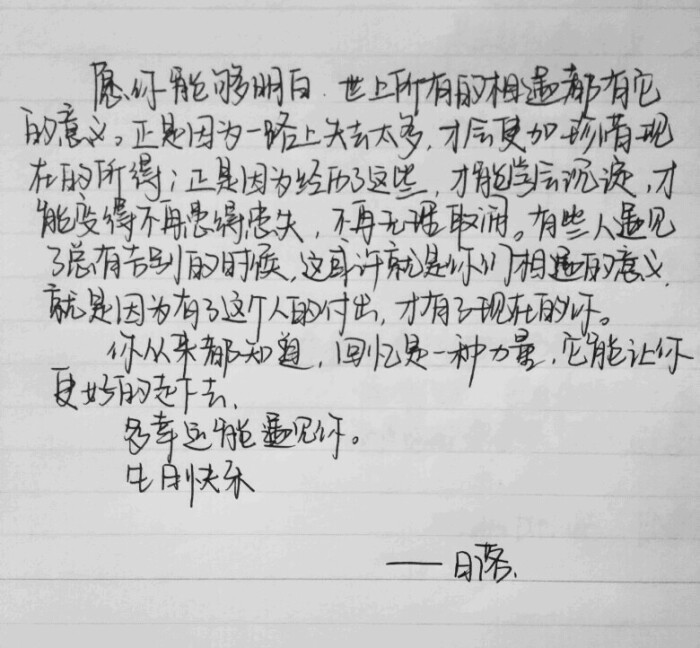 愿你能够明白.世上所有的相遇都有它
的意义。正是因为一路上失去太多,才会更加珍惜现
在的所得;正是因为经历了这些,才能学会沉淀,才
能变得不再患得患失,不再无理取闹。有些人遇见
了总有告别的时候,这或许就是你们相遇的意义,
就是因为有了这个人的付出,才有了现在的你。
你从来都知道,回忆是一种力量,它能让你
更好的走下去,
多幸运能遇见你。
生日快乐
——日落.